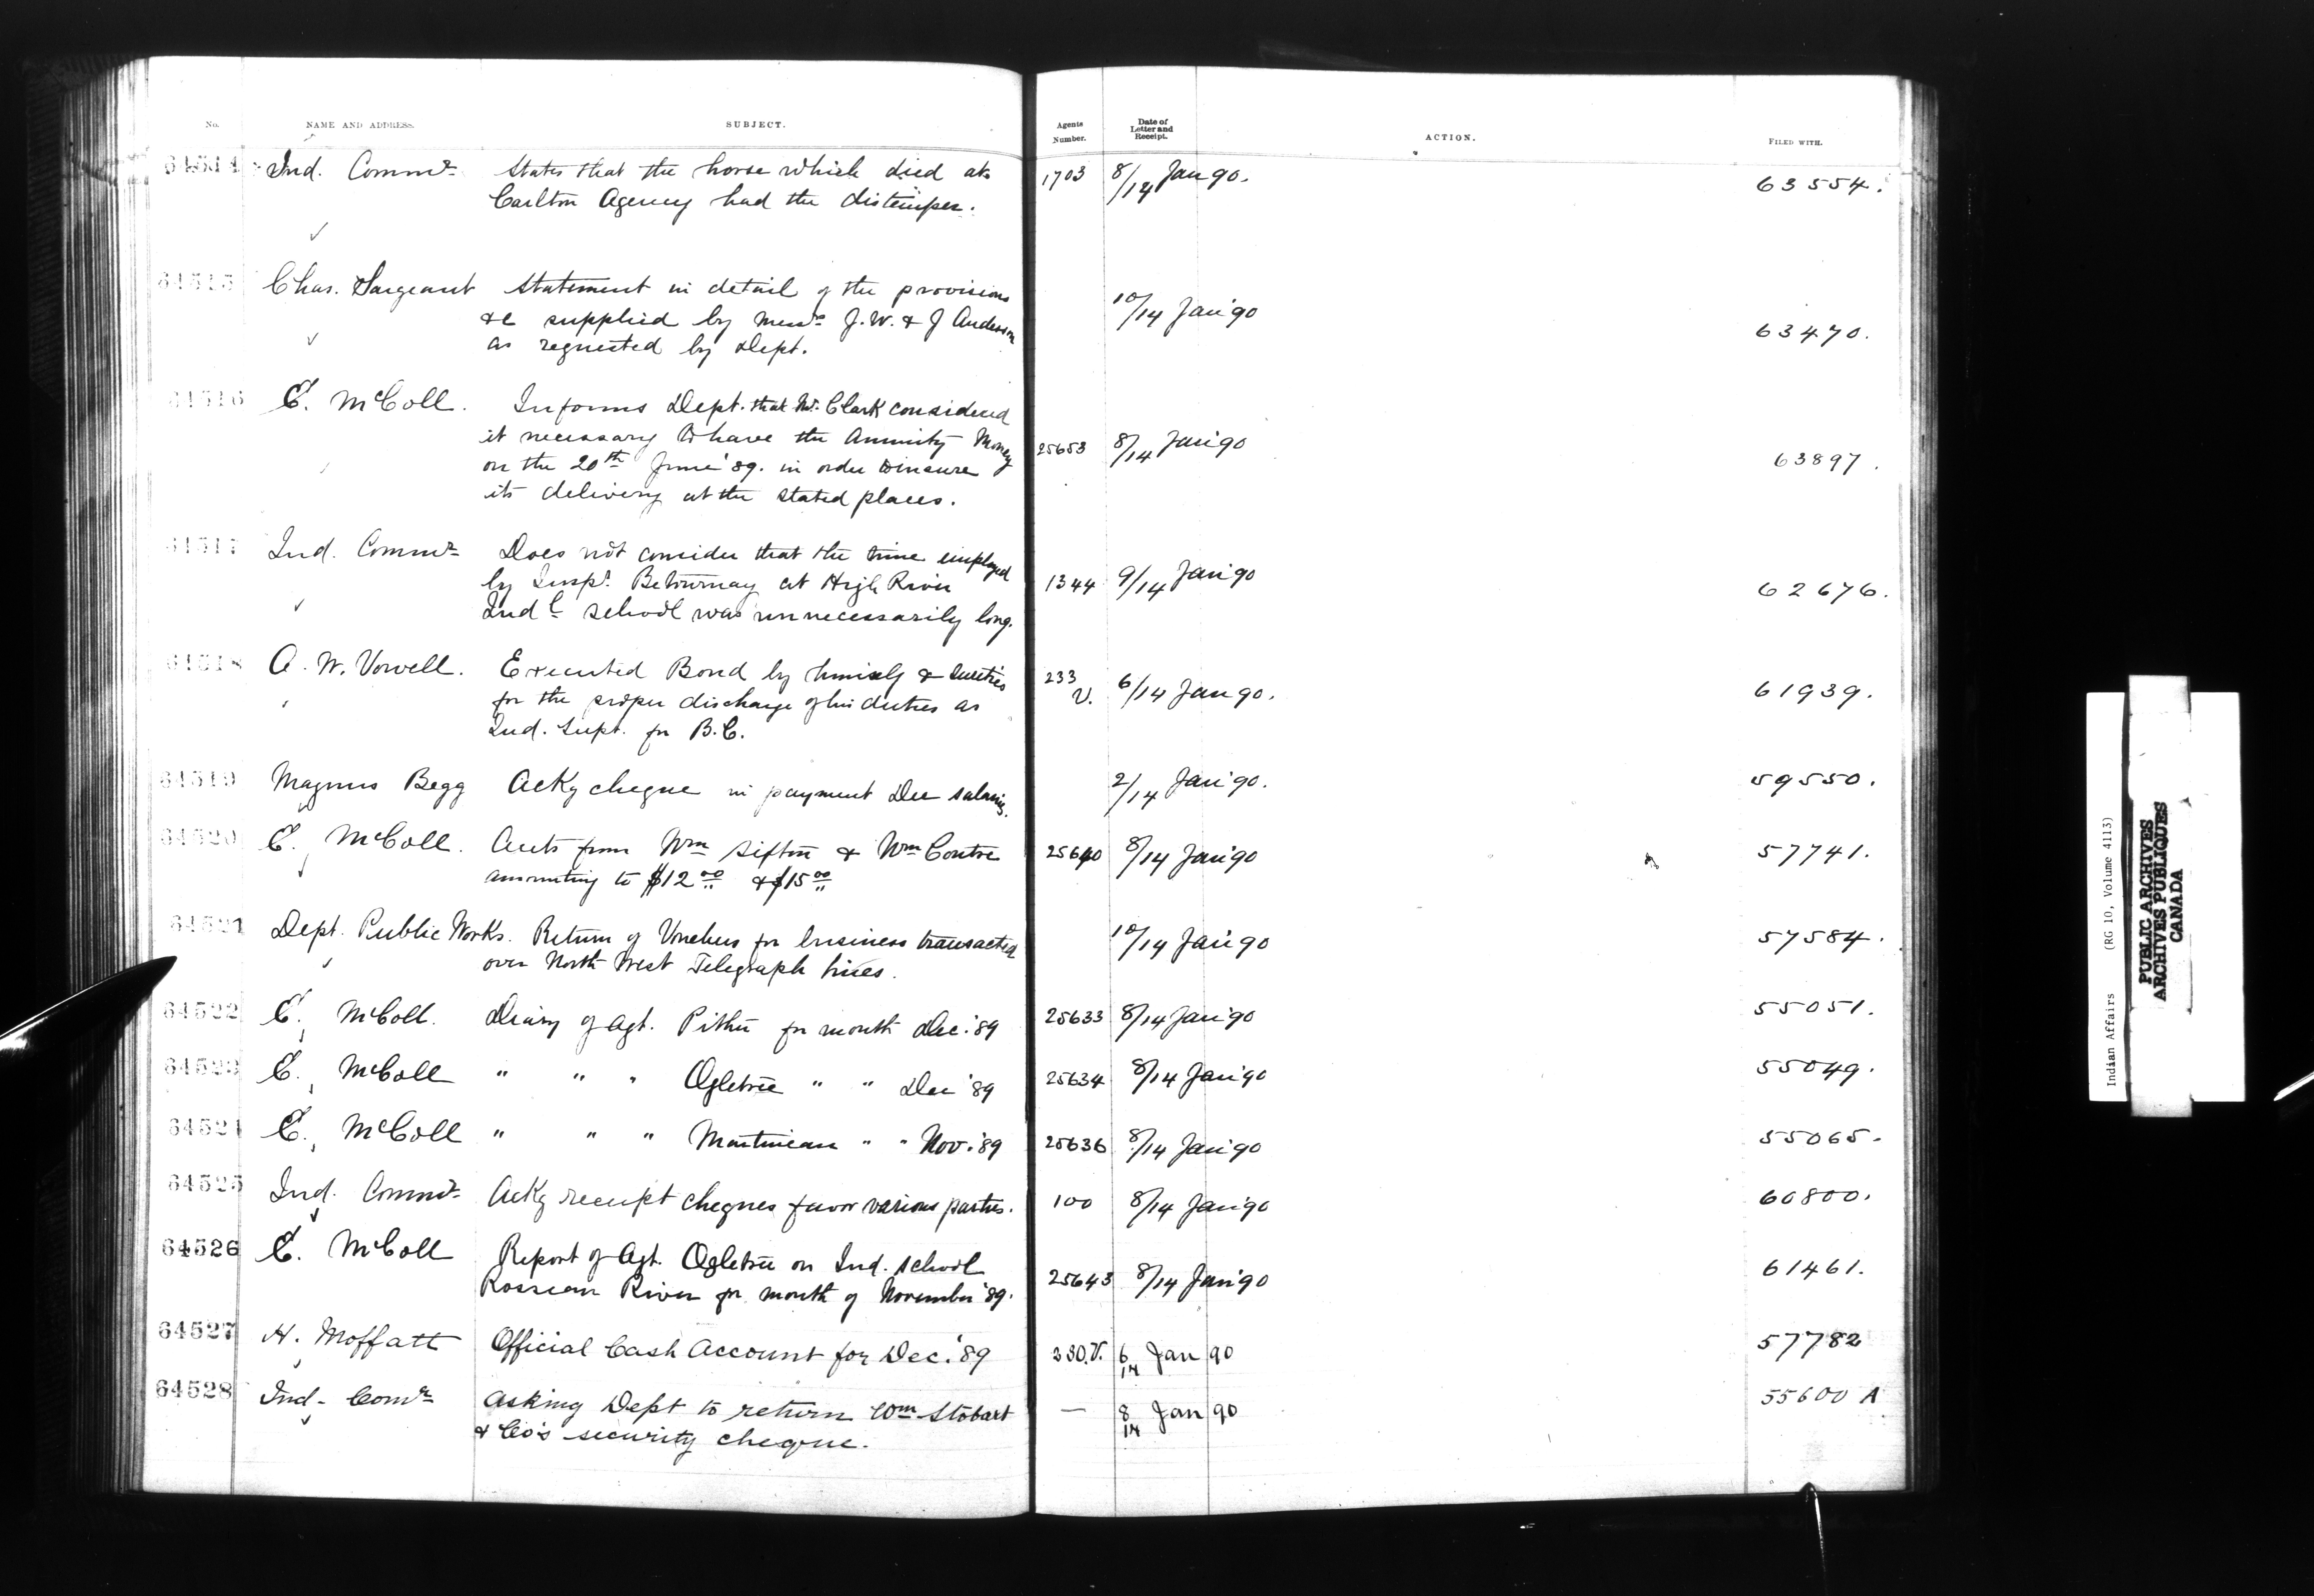 No. NAME AND ADDRESS. SUBJECT. Agents Number. Date of Letter and Receipt. ACTION. FILED WITH.
64514 Ind. Commr States that the horse which died at 1703 8/14 Jan 90. 63554.
Carlton Agency had the distemper.
64515 Chas. Sargeant Statement in detail of the provisions 10/14 Jan'90 63470.
&c supplied by Messrs J. W. & J Anderson
as requested by Dept.
64516 E. McColl. Informs Dept. that Mr. Clark considered 25653 8/14 Jan'90 63897.
it necessary to have the Annuity Money
on the 20th June '89. in order to insure
its delivery at the stated places.
64517 Ind. Commr Does not consider that the time employed 1344 9/14 Jan'90 62676.
by Inspr. Betournay at High River
Indl school was unnecessarily long.
64518 A. W. Vowell. Executed Bond by himself & sureties 233 V. 6/14 Jan 90. 61939.
for the proper discharge of his duties as
Ind. Supt. for B.C.
64519 Magnus Begg Ackg cheque in payment Dec salaries. 2/14 Jan'90. 59550.
64520 E. McColl. Accts from Wm Sifton & Wm Coutre 25640 8/14 Jan'90 57741.
amounting to $12.00 & $15.00
64521 Dept. Public Works. Return of Vouchers for business transacted 10/14 Jan'90 57584.
over North West Telegraph lines.
64522 E. McColl. Diary of Agt. Pither for month Dec. '89 25633 8/14 Jan'90 55051.
64523 E. McColl " " " Ogletree " " Dec '89 25634 8/14 Jan'90 55049.
64524 E. McColl " " " Martineau " " Nov. '89 25636 8/14 Jan'90 55065.
64525 Ind. Commr Ackg receipt cheques favor various parties. 100 8/14 Jan'90 60800.
64526 E. McColl Report of Agt. Ogletree on Ind. school 25643 8/14 Jan'90 61461.
Rosseau River for month of November '89.
64527 H. Moffatt Official Cash Account for Dec. '89 330.V. 6/14 Jan 90 57782
64528 Ind. Comr Asking Dept to return Wm Stobart — 8/14 Jan 90 55600 A
& Co's security cheque.
Indian Affairs (RG 10, Volume 4113)
PUBLIC ARCHIVES
ARCHIVES PUBLIQUES
CANADA